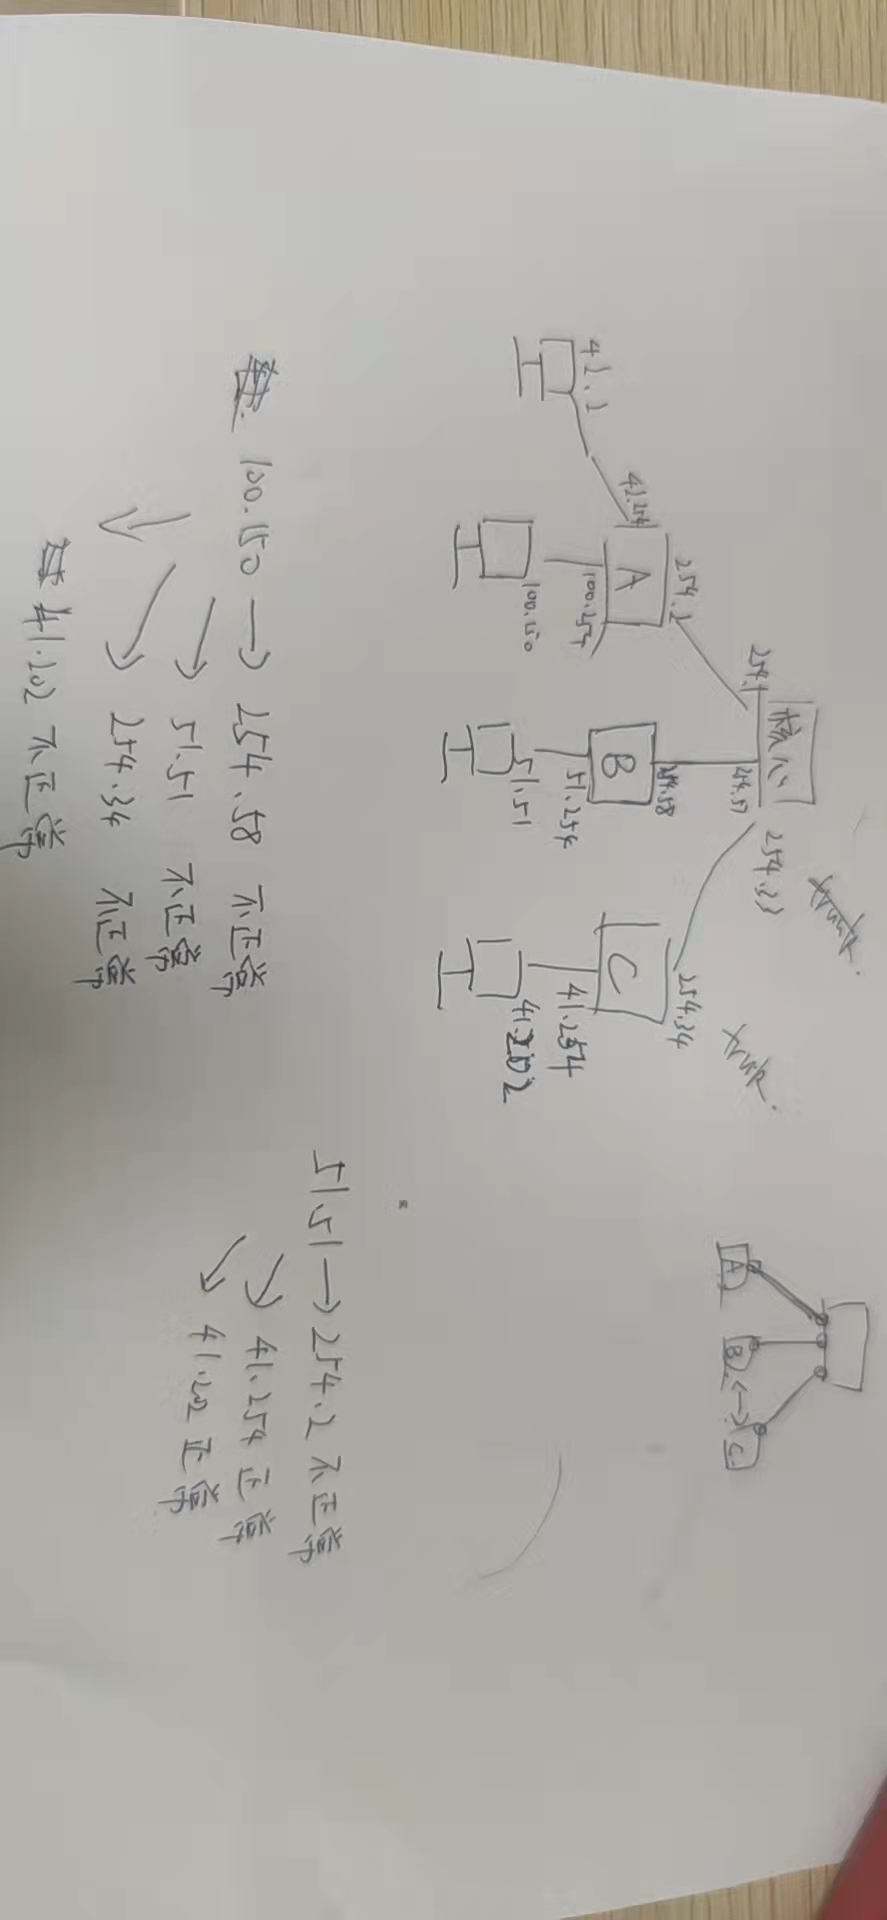 核心
254.1
254.57
254.33
trunk.
254.2
254.58
254.34
trunk.
A
B
C
100.254
51.254
41.254
100.150
51.51
41.202
A
B
C
100.150 → 254.58 不正常
51.51 不正常
254.34 不正常
41.202 不正常
51.51 → 254.2 不正常
41.254 正常
41.202 正常